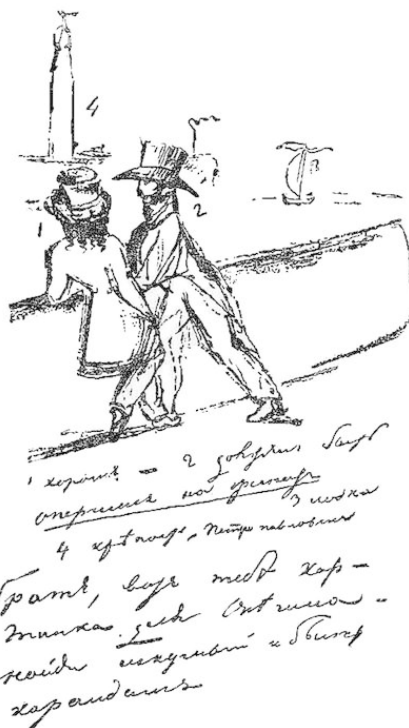 4
2
3
1
1 хорошъ — 2 долженъ быть
опершися на гранитъ
3 лодка
4 крѣпость, Петропавловская
Братъ, вотъ тебѣ кар-
тинка для Онѣгина -
найди искусный и быстрый
карандашъ